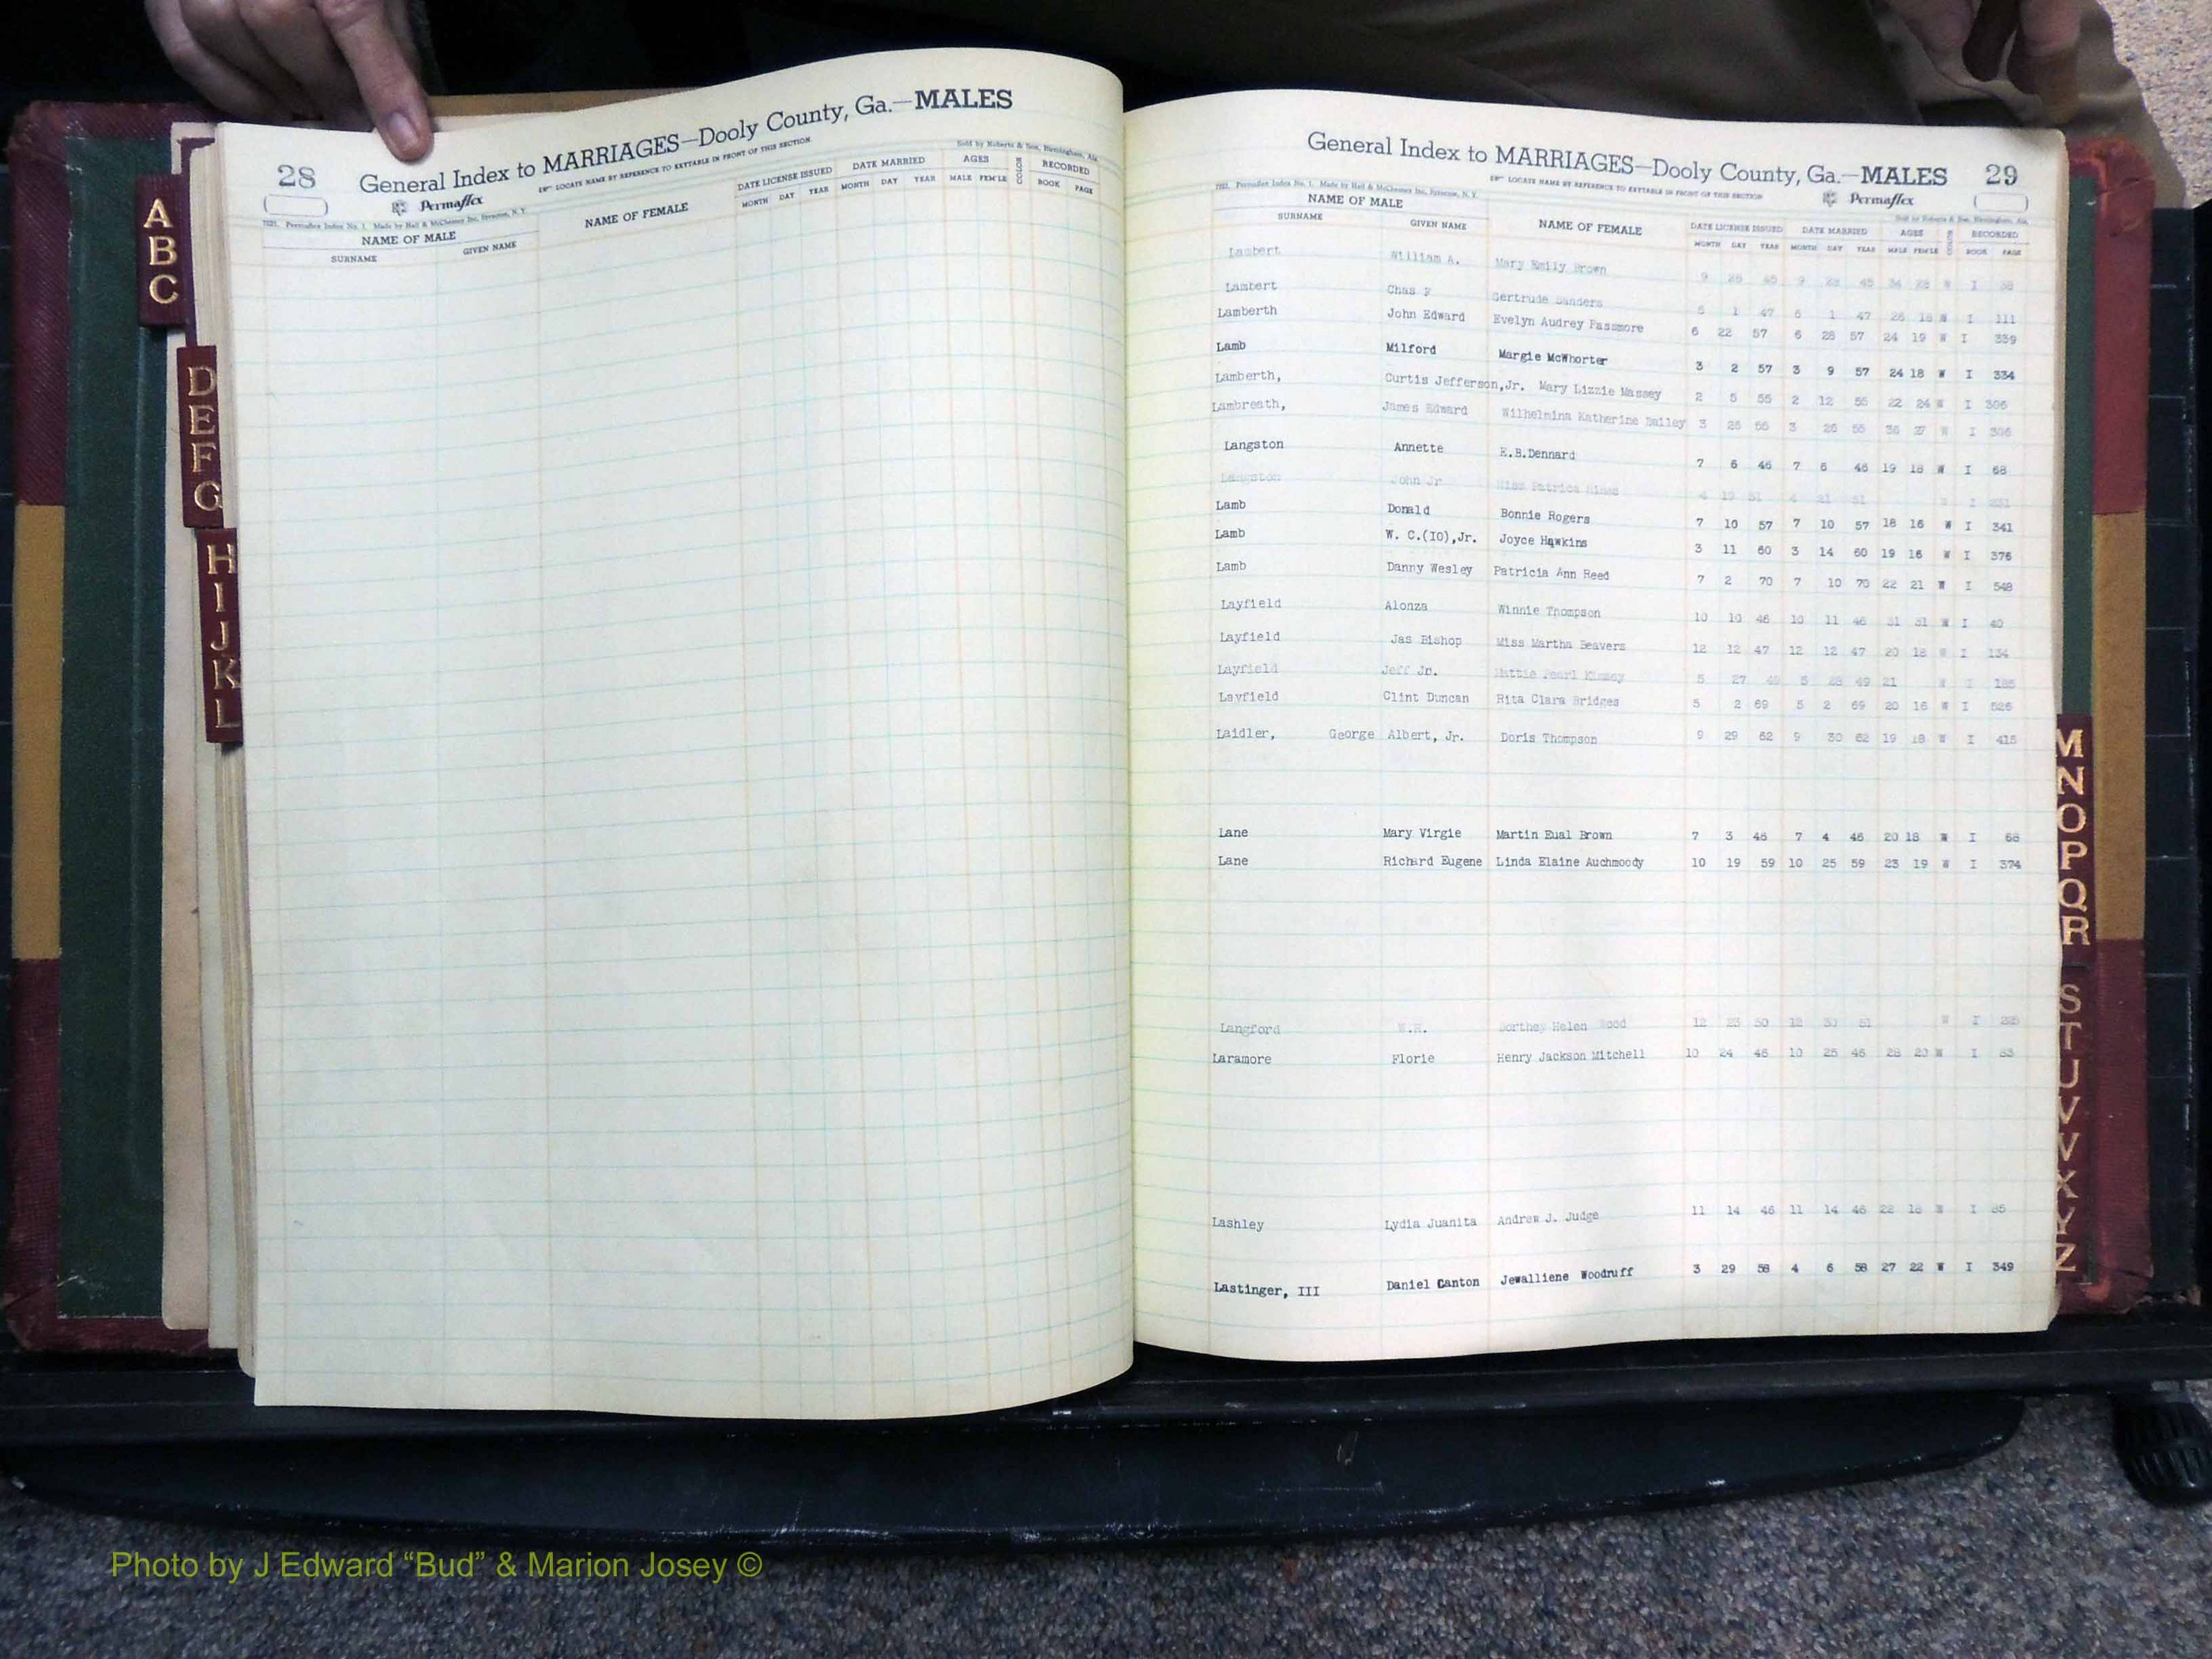 28
General Index to MARRIAGES—Dooly County, Ga.—MALES
LOCATE NAME BY REFERENCE TO KEYTABLE IN FRONT OF THIS SECTION
Permaflex
Sold by Roberts & Son, Birmingham, Ala.
7521. Permaflex Index No. 1. Made by Hall & McChesney Inc, Syracuse, N. Y.
NAME OF MALE NAME OF FEMALE DATE LICENSE ISSUED DATE MARRIED AGES COLOR RECORDED
SURNAME GIVEN NAME MONTH DAY YEAR MONTH DAY YEAR MALE FEM'LE BOOK PAGE
General Index to MARRIAGES—Dooly County, Ga.—MALES 29
LOCATE NAME BY REFERENCE TO KEYTABLE IN FRONT OF THIS SECTION
Permaflex
7521. Permaflex Index No. 1. Made by Hall & McChesney Inc, Syracuse, N. Y.
Sold by Roberts & Son, Birmingham, Ala.
NAME OF MALE NAME OF FEMALE DATE LICENSE ISSUED DATE MARRIED AGES COLOR RECORDED
SURNAME GIVEN NAME MONTH DAY YEAR MONTH DAY YEAR MALE FEM'LE BOOK PAGE
Lambert William A. Mary Emily Brown 9 45 9 45 W I
Lambert Chas F Gertrude Sanders 1 47 1 47 W I 111
Lamberth John Edward Evelyn Audrey Passmore 6 22 57 6 28 57 24 19 W I 339
Lamb Milford Margie McWhorter 3 2 57 3 9 57 24 18 W I 334
Lamberth, Curtis Jefferson,Jr. Mary Lizzie Massey 2 5 55 2 12 55 22 24 W I
Lambreath, James Edward Wilhelmina Katherine Bailey 3 55 3 26 55 W I
Langston Annette E.B.Dennard 7 6 46 7 6 46 19 18 W I 68
Langston John Jr Miss Patrica Hines 4 19 51 4 21 51 W I
Lamb Donald Bonnie Rogers 7 10 57 7 10 57 18 16 W I 341
Lamb W. C.(IO),Jr. Joyce Hawkins 3 11 60 3 14 60 19 16 W I 376
Lamb Danny Wesley Patricia Ann Reed 7 2 70 7 10 70 22 21 W I 548
Layfield Alonza Winnie Thompson 10 10 46 10 11 46 W I 40
Layfield Jas Bishop Miss Martha Beavers 12 12 47 12 12 47 20 18 W I 134
Layfield Jeff Jr. Mattie Pearl Kimsey 5 27 49 5 28 49 21 W I 185
Layfield Clint Duncan Rita Clara Bridges 5 2 69 5 2 69 20 16 W I 526
Laidler, George Albert, Jr. Doris Thompson 9 29 62 9 30 62 19 18 W I 415
Lane Mary Virgie Martin Eual Brown 7 3 46 7 4 46 20 18 W I 66
Lane Richard Eugene Linda Elaine Auchmoody 10 19 59 10 25 59 23 19 W I 374
Langford W.H. Dorthey Helen Wood 12 23 50 12 30 51 W I
Laramore Florie Henry Jackson Mitchell 10 24 46 10 25 46 28 20 W I
Lashley Lydia Juanita Andrew J. Judge 11 14 46 11 14 46 22 18 W I
Lastinger, III Daniel Canton Jewalliene Woodruff 3 29 58 4 6 58 27 22 W I 349
A
B
C
D
E
F
G
H
I
J
K
L
M
N
O
P
Q
R
S
T
U
V
W
X
Y
Z
Photo by J Edward “Bud” & Marion Josey ©